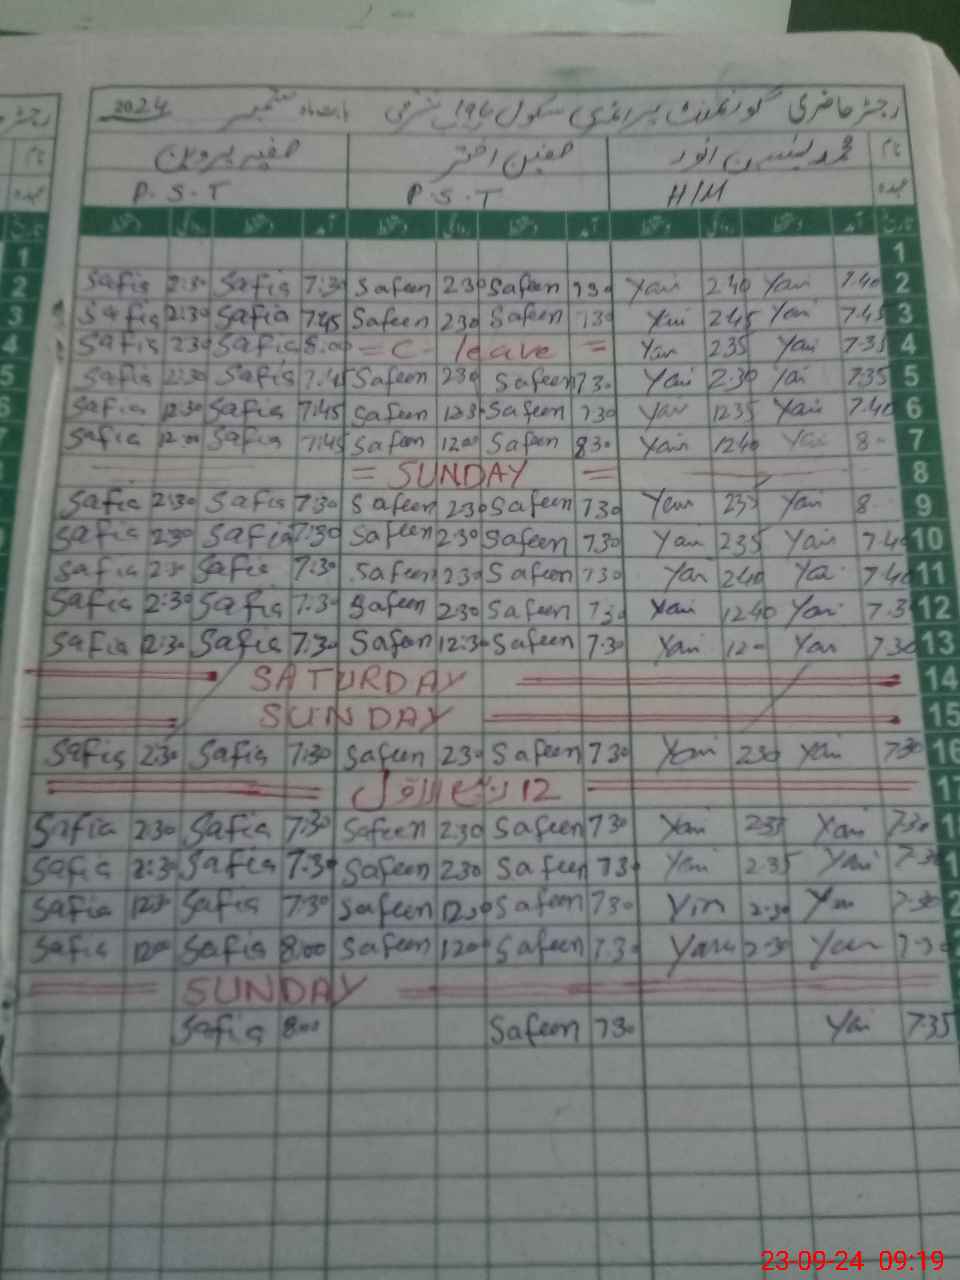 رجسٹر حاضری گورنمنٹ پرائمری سکول بابت ماہ ستمبر 2024
نام محمد یٰسین انور صفین اختر صفیہ پروین
عہدہ H/M P.S.T P.S.T
تاریخ آمد دستخط روانگی دستخط آمد دستخط روانگی دستخط آمد دستخط روانگی دستخط
1
Safia 2:30 Safia 7:30 Safeen 230 Safeen 730 Yasin 240 Yasin 7.40 2
Safia 2:30 Safia 7:45 Safeen 230 Safeen 730 Yasin 245 Yasin 7.45 3
Safia 230 Safia 8:00 = C- leave = Yasin 235 Yasin 7.35 4
Safia 2:30 Safia 7:45 Safeen 230 Safeen 730 Yasin 2.30 Yasin 7.35 5
Safia 12:30 Safia 7:45 Safeen 1230 Safeen 730 Yasin 1235 Yasin 7.40 6
Safia 12:00 Safia 7:45 Safeen 1200 Safeen 830 Yasin 1240 Yasin 8 7
= SUNDAY = 8
Safia 2:30 Safia 7:30 Safeen 2:30 Safeen 730 Yasin 235 Yasin 8 9
Safia 230 Safia 7:30 Safeen 2:30 Safeen 730 Yasin 235 Yasin 7.40 10
Safia 2:30 Safia 7:30 Safeen 230 Safeen 730 Yasin 240 Yasin 7.40 11
Safia 2:30 Safia 7:30 Safeen 230 Safeen 730 Yasin 1240 Yasin 7.3 12
Safia 12:30 Safia 7:30 Safeen 12:30 Safeen 7:30 Yasin 120 Yasin 730 13
SATURDAY 14
SUNDAY 15
Safia 2:30 Safia 7:30 Safeen 230 Safeen 730 Yasin 230 Yasin 7:30 16
12 ربیع الاول 17
Safia 2:30 Safia 7:30 Safeen 230 Safeen 730 Yasin 235 Yasin 7:30
Safia 2:30 Safia 7:30 Safeen 230 Safeen 730 Yasin 2:35 Yasin 7:30
Safia 1230 Safia 7:30 Safeen 1230 Safeen 730 Yasin 2:30 Yasin 7:30
Safia 1200 Safia 8:00 Safeen 1200 Safeen 7:30 Yasin 2:30 Yasin 7:30
SUNDAY
Safia 8:00 Safeen 730 Yasin 7:35
23-09-24 09:19